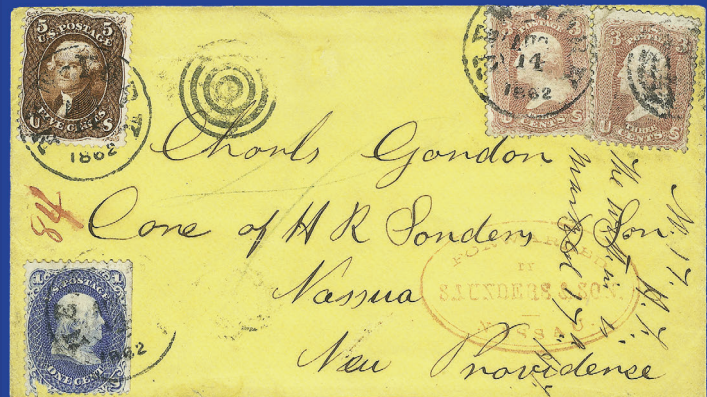 5 U.S. POSTAGE 5
FIVE CENTS
U S
1862
NEW YORK
AUG
14
1862
3 3
U THREE CENTS S
Chorls Gondon
Cone of H R Sonders Son
Nassua
New Providense
84
FORWARDED
BY
SAUNDERS & SON.
NASSAU
U.S. POSTAGE
1 1
ONE CENT
1862